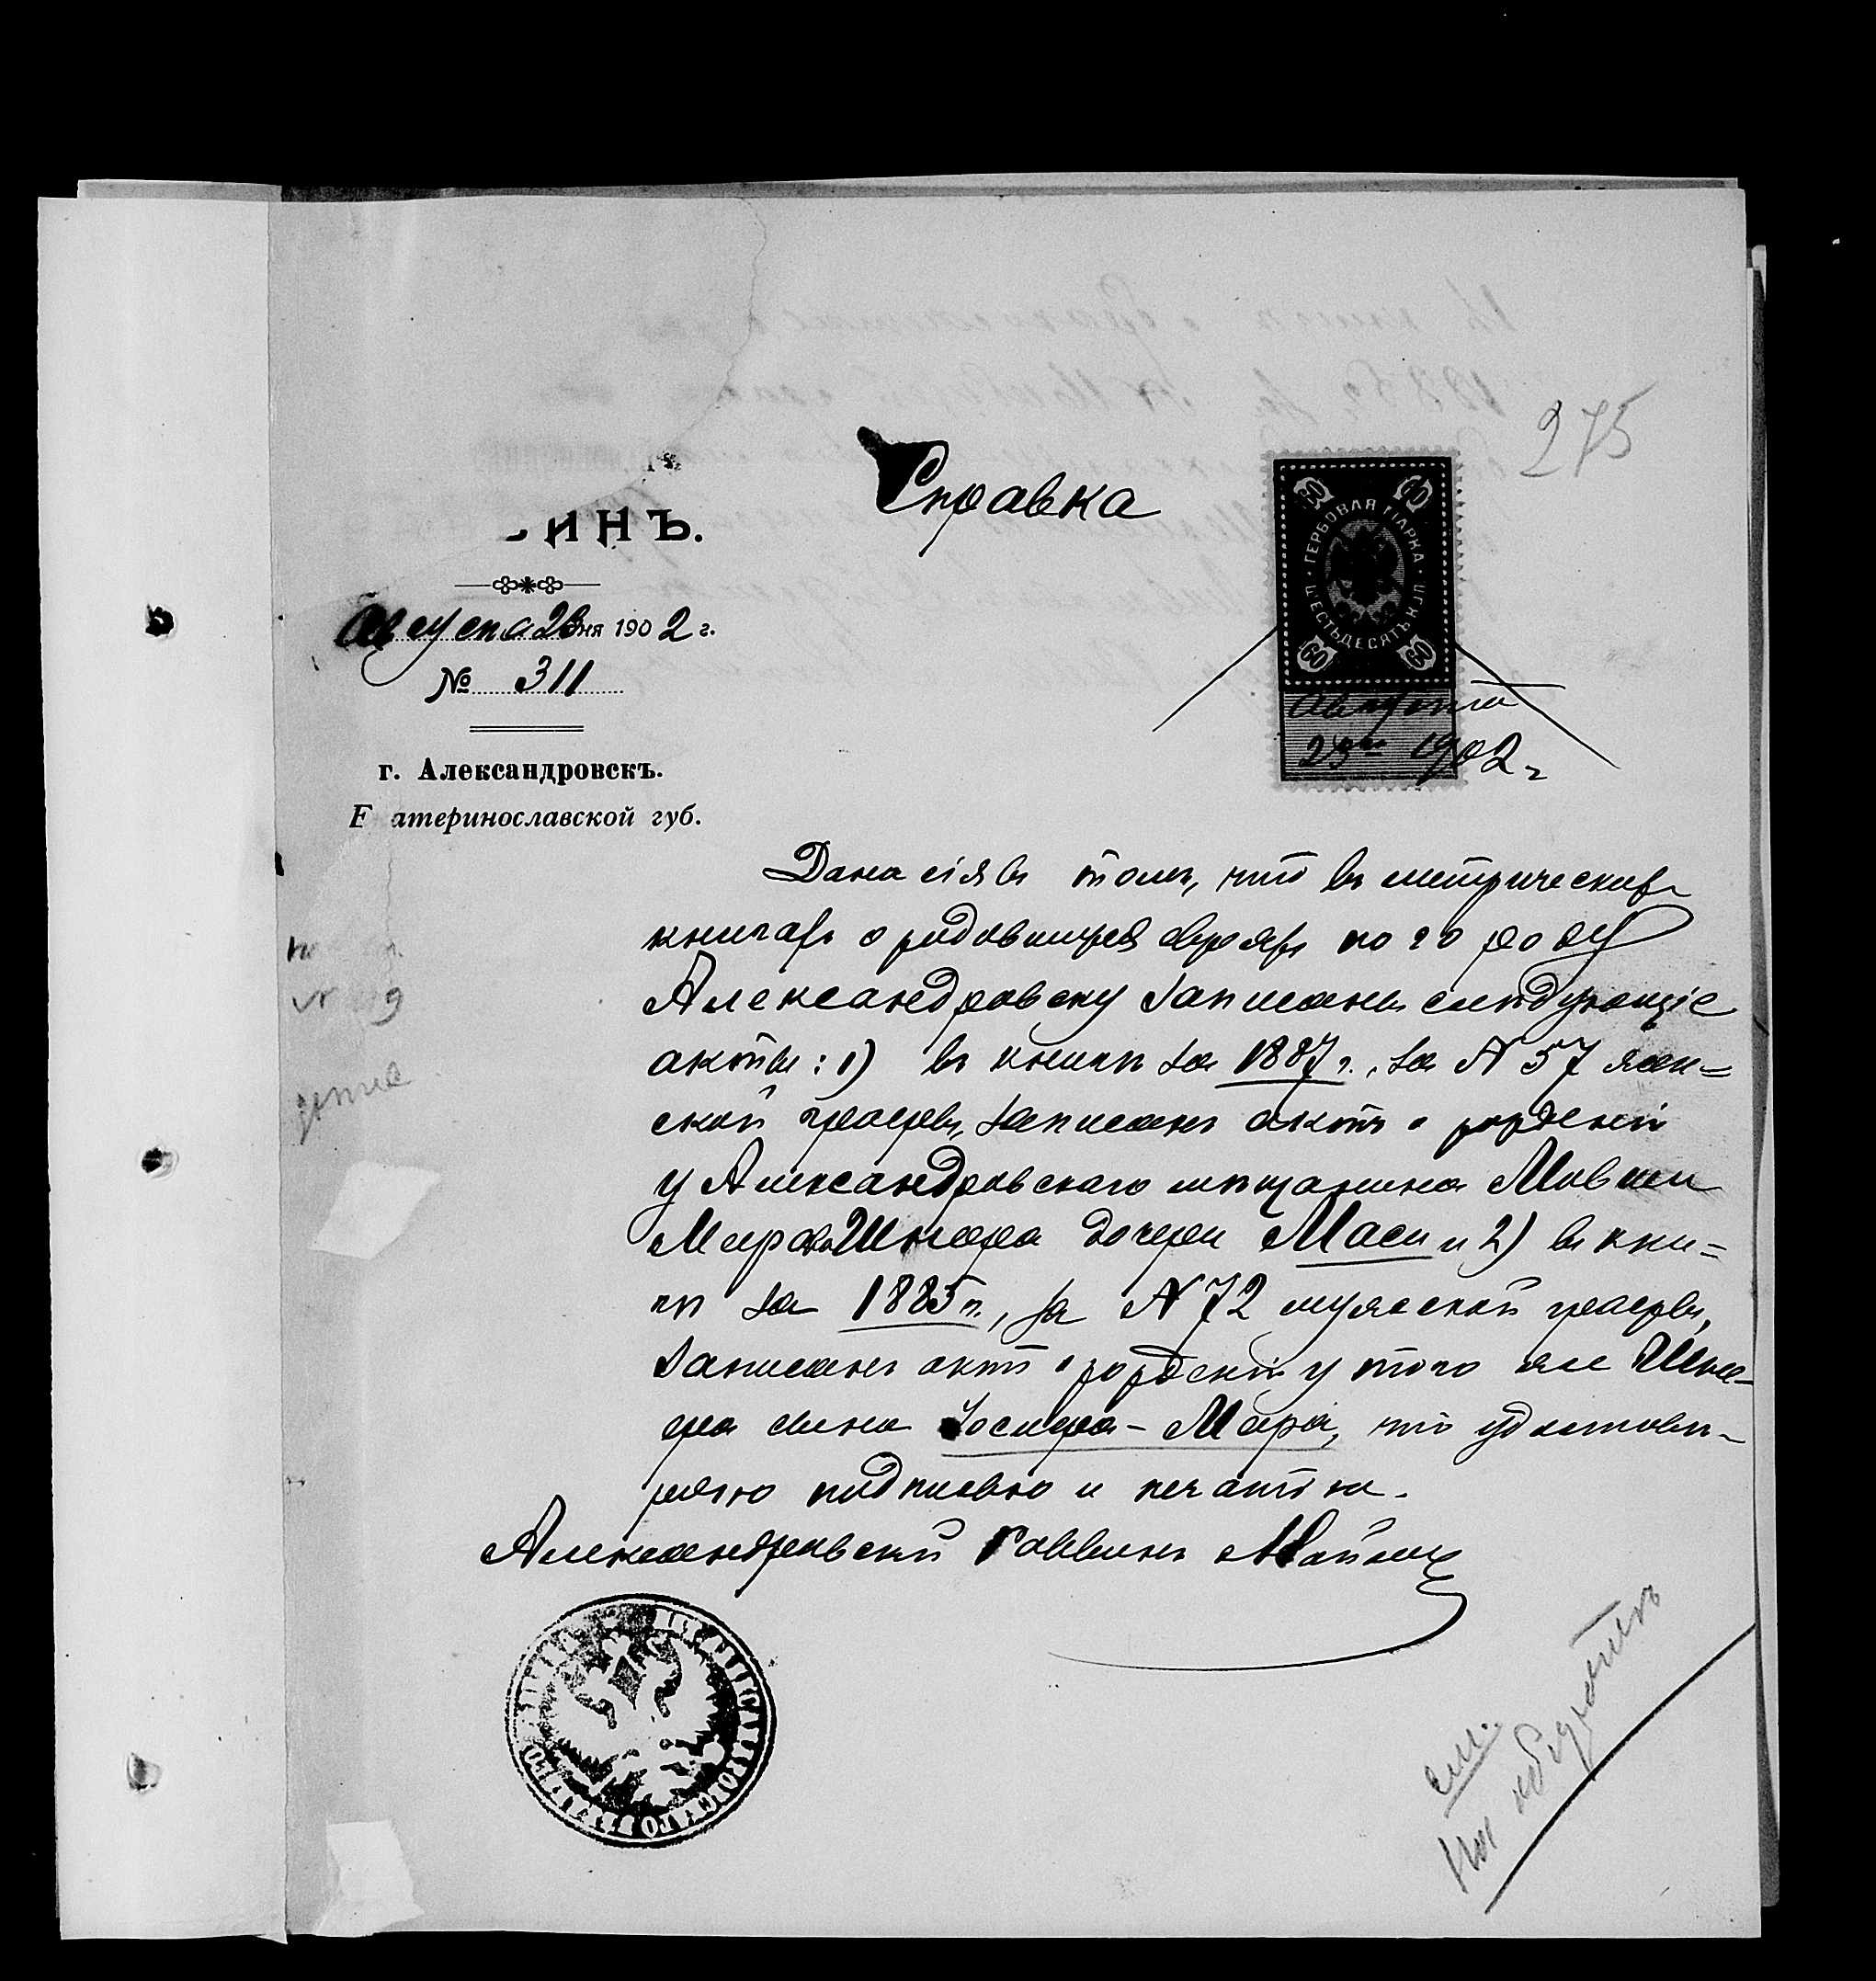 275
Справка
ИНЪ.
Августа 23 дня 1902 г.
№ 311
г. Александровскъ.
Е атеринославской губ.
60 60
ГЕРБОВАЯ МАРКА
ШЕСТЬДЕСЯТЪ КОП
60 60
Августа
23 дня 1902 г
Дана сія въ томъ, что въ метрическихъ
книгахъ о родившихся евреяхъ по го роду
Александровску записаны слѣдующіе
акты: 1) въ книгѣ за 1887 г., за № 57 жен=
ской графы, записанъ актъ о рожденіи
у Александровскаго мѣщанина Мовши
Шнеера дочери Маси и 2) въ кни=
гѣ за 1885 г., за № 72 мужской графы,
записанъ актъ о рожденіи у того же Шне-
ера сына Іосифа-Мера, что удостовѣ-
ряю подписью и печатью.
Александровскій Раввинъ
см.
на оборотѣ